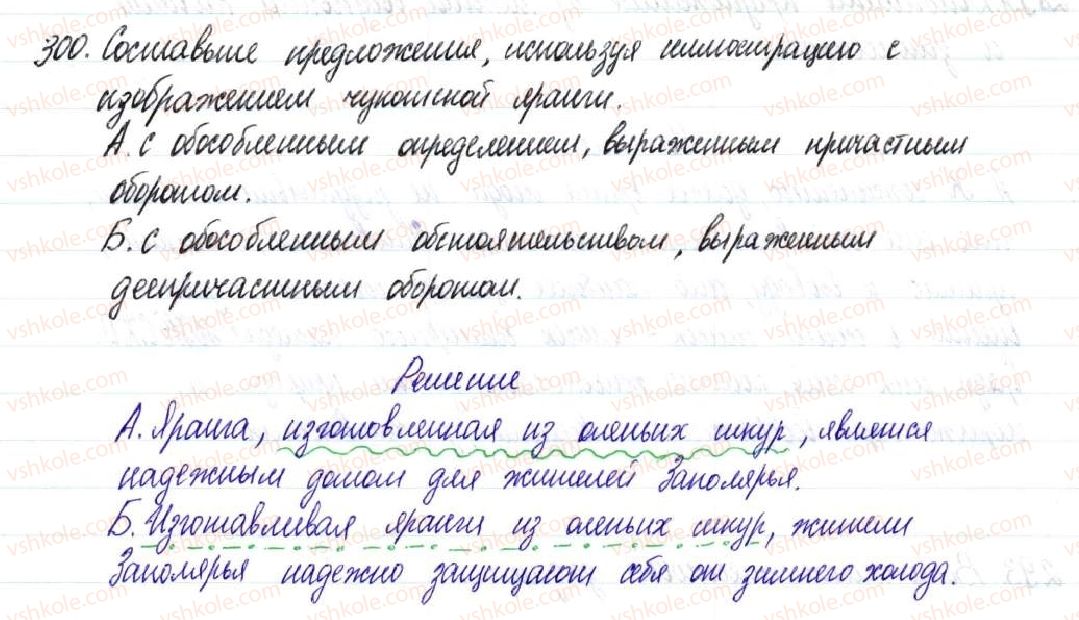 300. Составьте предложения, используя иллюстрацию с
изображением чукотской яранги.
А. с обособленным определением, выраженным причастным
оборотом.
Б. с обособленным обстоятельством, выраженным
деепричастным оборотом.
Решение
А. Яранга, изготовленная из оленьих шкур, является
надежным домом для жителей Заполярья.
Б. Изготавливая яранги из оленьих шкур, жители
Заполярья надежно защищают себя от зимнего холода.